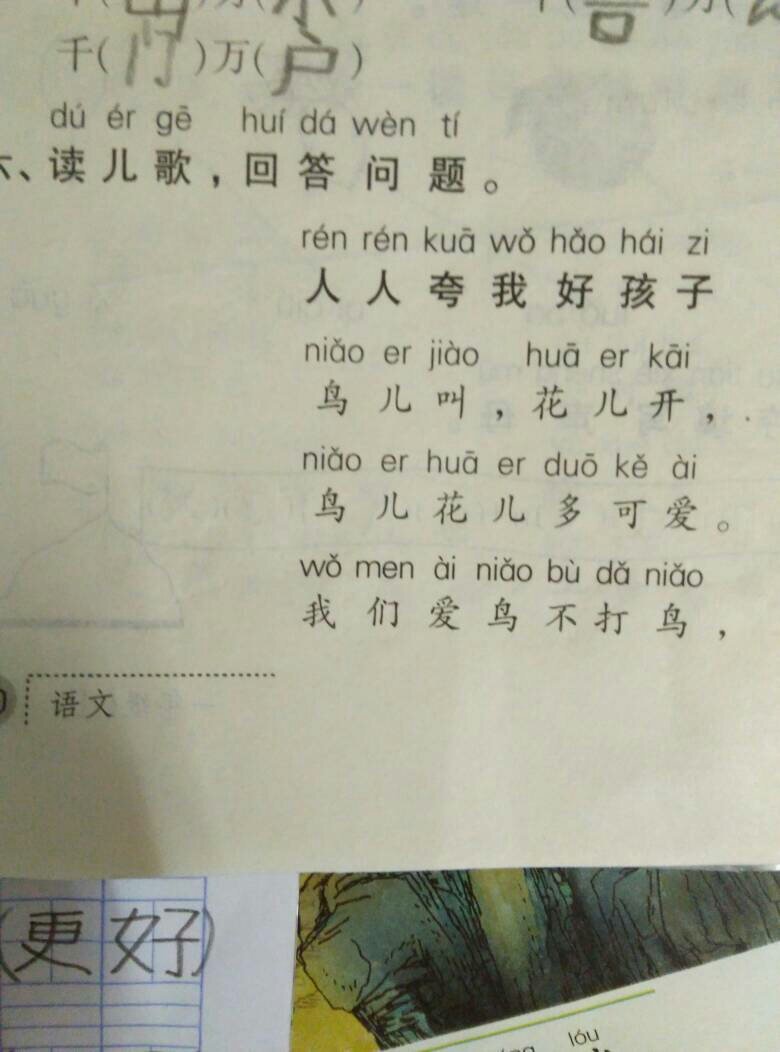 千(门)万(户)
dú ér gē huí dá wèn tí
六、读儿歌,回答问题。
rén rén kuā wǒ hǎo hái zi
人人夸我好孩子
niǎo er jiào huā er kāi
鸟儿叫,花儿开,
niǎo er huā er duō kě ài
鸟儿花儿多可爱。
wǒ men ài niǎo bù dǎ niǎo
我们爱鸟不打鸟,
语文
(更好)
lóu